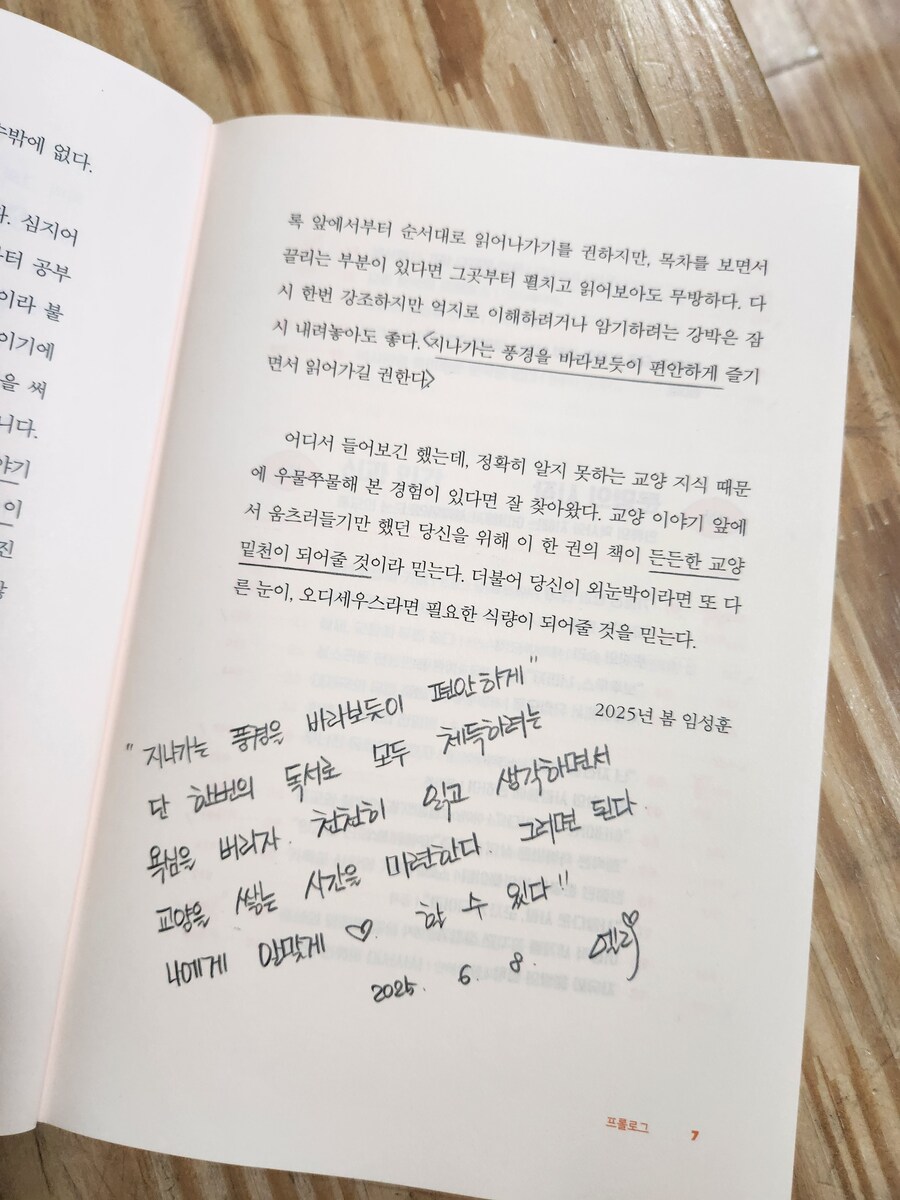 수밖에 없다.
다. 심지어
부터 공부
이라 불
이기에
을 써
니다.
야기
이
진
록 앞에서부터 순서대로 읽어나가기를 권하지만, 목차를 보면서
끌리는 부분이 있다면 그곳부터 펼치고 읽어보아도 무방하다. 다
시 한번 강조하지만 억지로 이해하려거나 암기하려는 강박은 잠
시 내려놓아도 좋다. <지나가는 풍경을 바라보듯이 편안하게 즐기
면서 읽어가길 권한다.>
어디서 들어보긴 했는데, 정확히 알지 못하는 교양 지식 때문
에 우물쭈물해 본 경험이 있다면 잘 찾아왔다. 교양 이야기 앞에
서 움츠러들기만 했던 당신을 위해 이 한 권의 책이 든든한 교양
밑천이 되어줄 것이라 믿는다. 더불어 당신이 외눈박이라면 또 다
른 눈이, 오디세우스라면 필요한 식량이 되어줄 것을 믿는다.
2025년 봄 임성훈
"지나가는 풍경을 바라보듯이 편안하게"
단 한번의 독서로 모두 체득하려는
욕심을 버리자. 천천히 읽고 생각하면서
교양을 쌓는 시간을 마련한다. 그러면 된다.
나에게 알맞게 ♡. 할 수 있다"
2025. 6. 8. 엘리
프롤로그 7